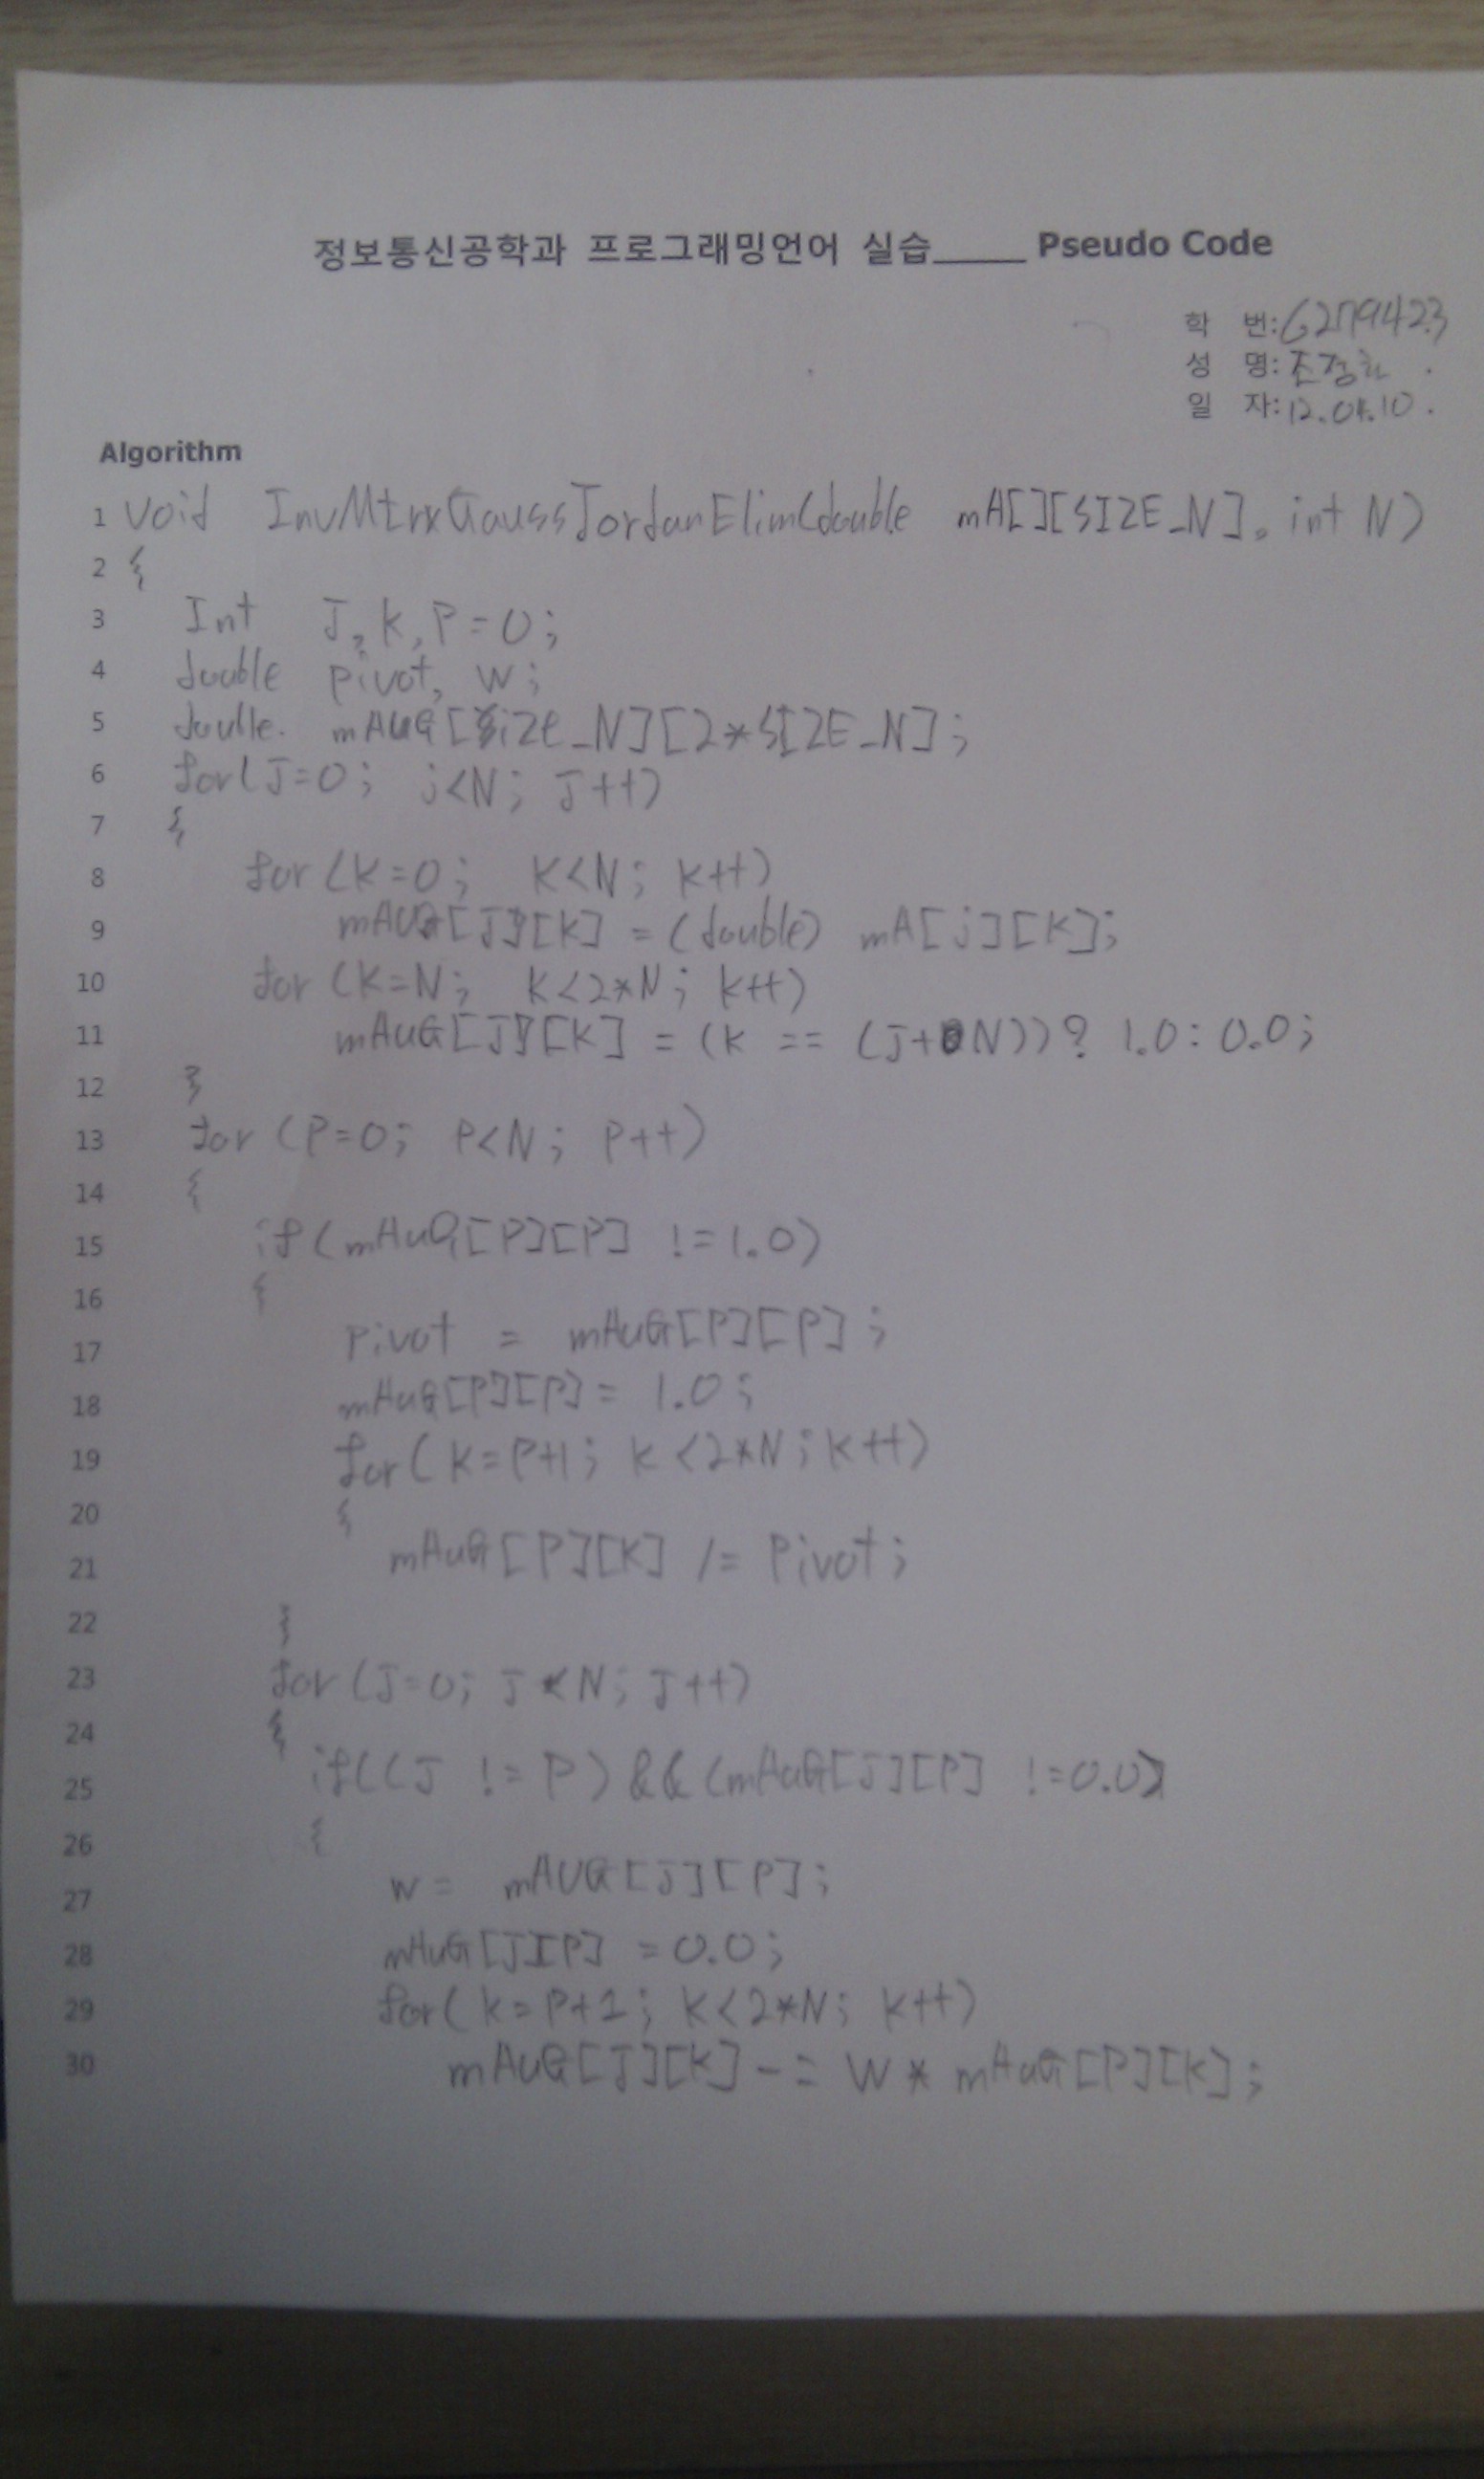 정보통신공학과 프로그래밍언어 실습_____ Pseudo Code
학 번:
성 명:
일 자:12.04.10.
Algorithm
1 void InvMtrxGaussJordanElim(double mA[][SIZE_N], int N)
2 {
3 Int J, k, P=0;
4 double pivot, w;
5 double. mAUG[size_N][2*SIZE_N];
6 for(J=0; j<N; J++)
7 {
8 for(k=0; k<N; k++)
9 mAUG[J][k] = (double) mA[j][k];
10 for (k=N; k<2*N; k++)
11 mAuG[J][k] = (k == (J+N))? 1.0: 0.0;
12 }
13 for (P=0; P<N; P++)
14 {
15 if(mAuG[P][P] !=1.0)
16 {
17 Pivot = mAuG[P][P];
18 mAuG[P][P]= 1.0;
19 for(k=P+1; k<2*N; k++)
20 {
21 mAuG[P][k] /= Pivot;
22 }
23 for(J=0; J<N; J++)
24 {
25 if((J != P) && (mAuG[J][P] !=0.0)
26 {
27 w= mAUG[J][P];
28 mAuG[J][P] =0.0;
29 for(k=P+1; k<2*N; k++)
30 mAuG[J][k] -= W * mAuG[P][k];